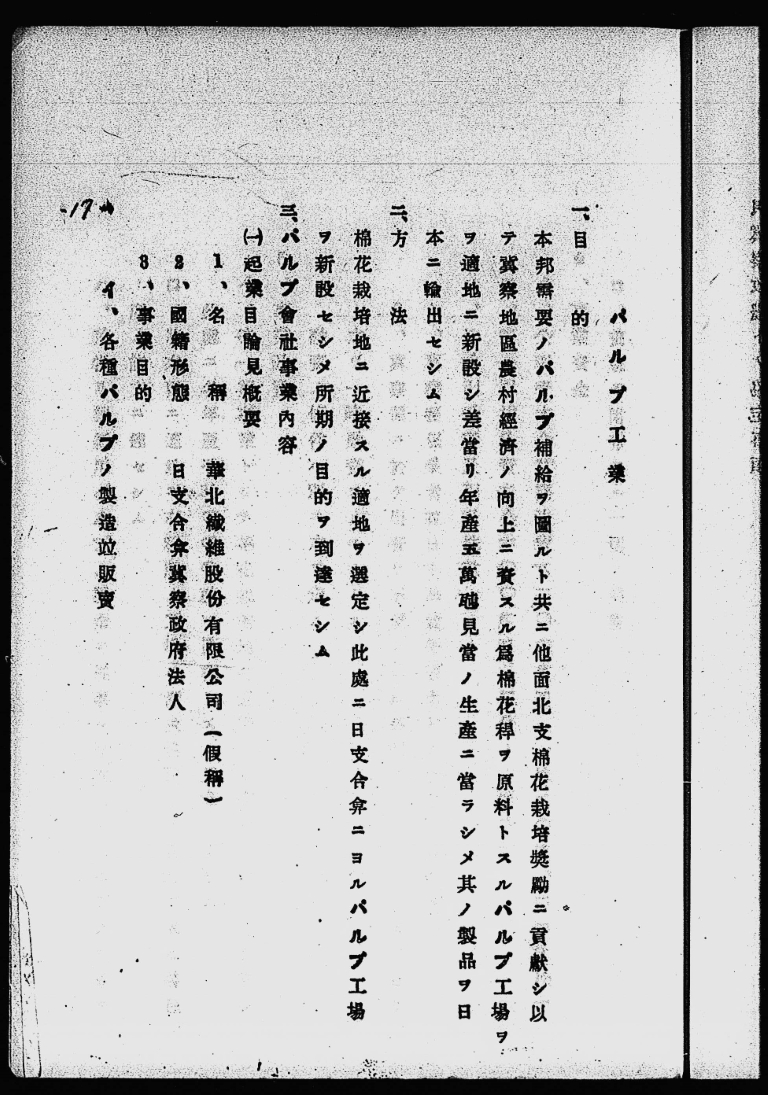 パルプ工業
一、目的
本邦需要ノパルプ補給ヲ圖ルト共ニ他面北支棉花栽培奬勵ニ貢獻シ以
テ冀察地區農村經濟ノ向上ニ資スル爲棉花稈ヲ原料トスルパルプ工場ヲ
ヲ適地ニ新設シ差當リ年産五萬瓲見當ノ生産ニ當ラシメ其ノ製品ヲ日
本ニ輸出セシム
二、方法
棉花栽培地ニ近接スル適地ヲ選定シ此處ニ日支合弁ニヨルパルプ工場
ヲ新設セシメ所期ノ目的ヲ到達セシム
三、パルプ會社事業內容
㈠起業目論見概要
1、名稱 華北纎維股份有限公司(假稱)
2、國籍形態 日支合弁冀察政府法人
3、事業目的
イ、各種パルプノ製造竝販賣
-17-